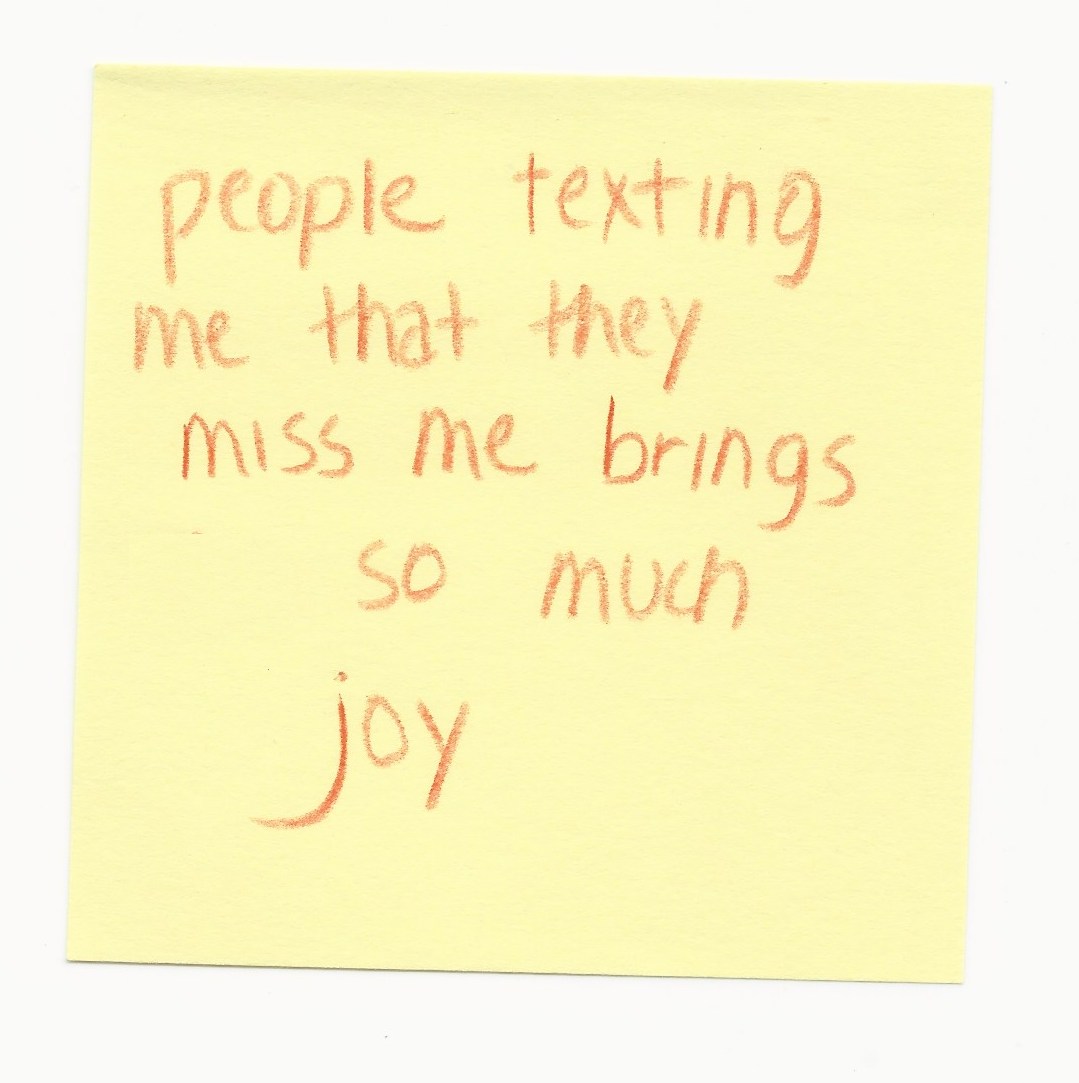 people texting
me that they
miss me brings
so much
joy